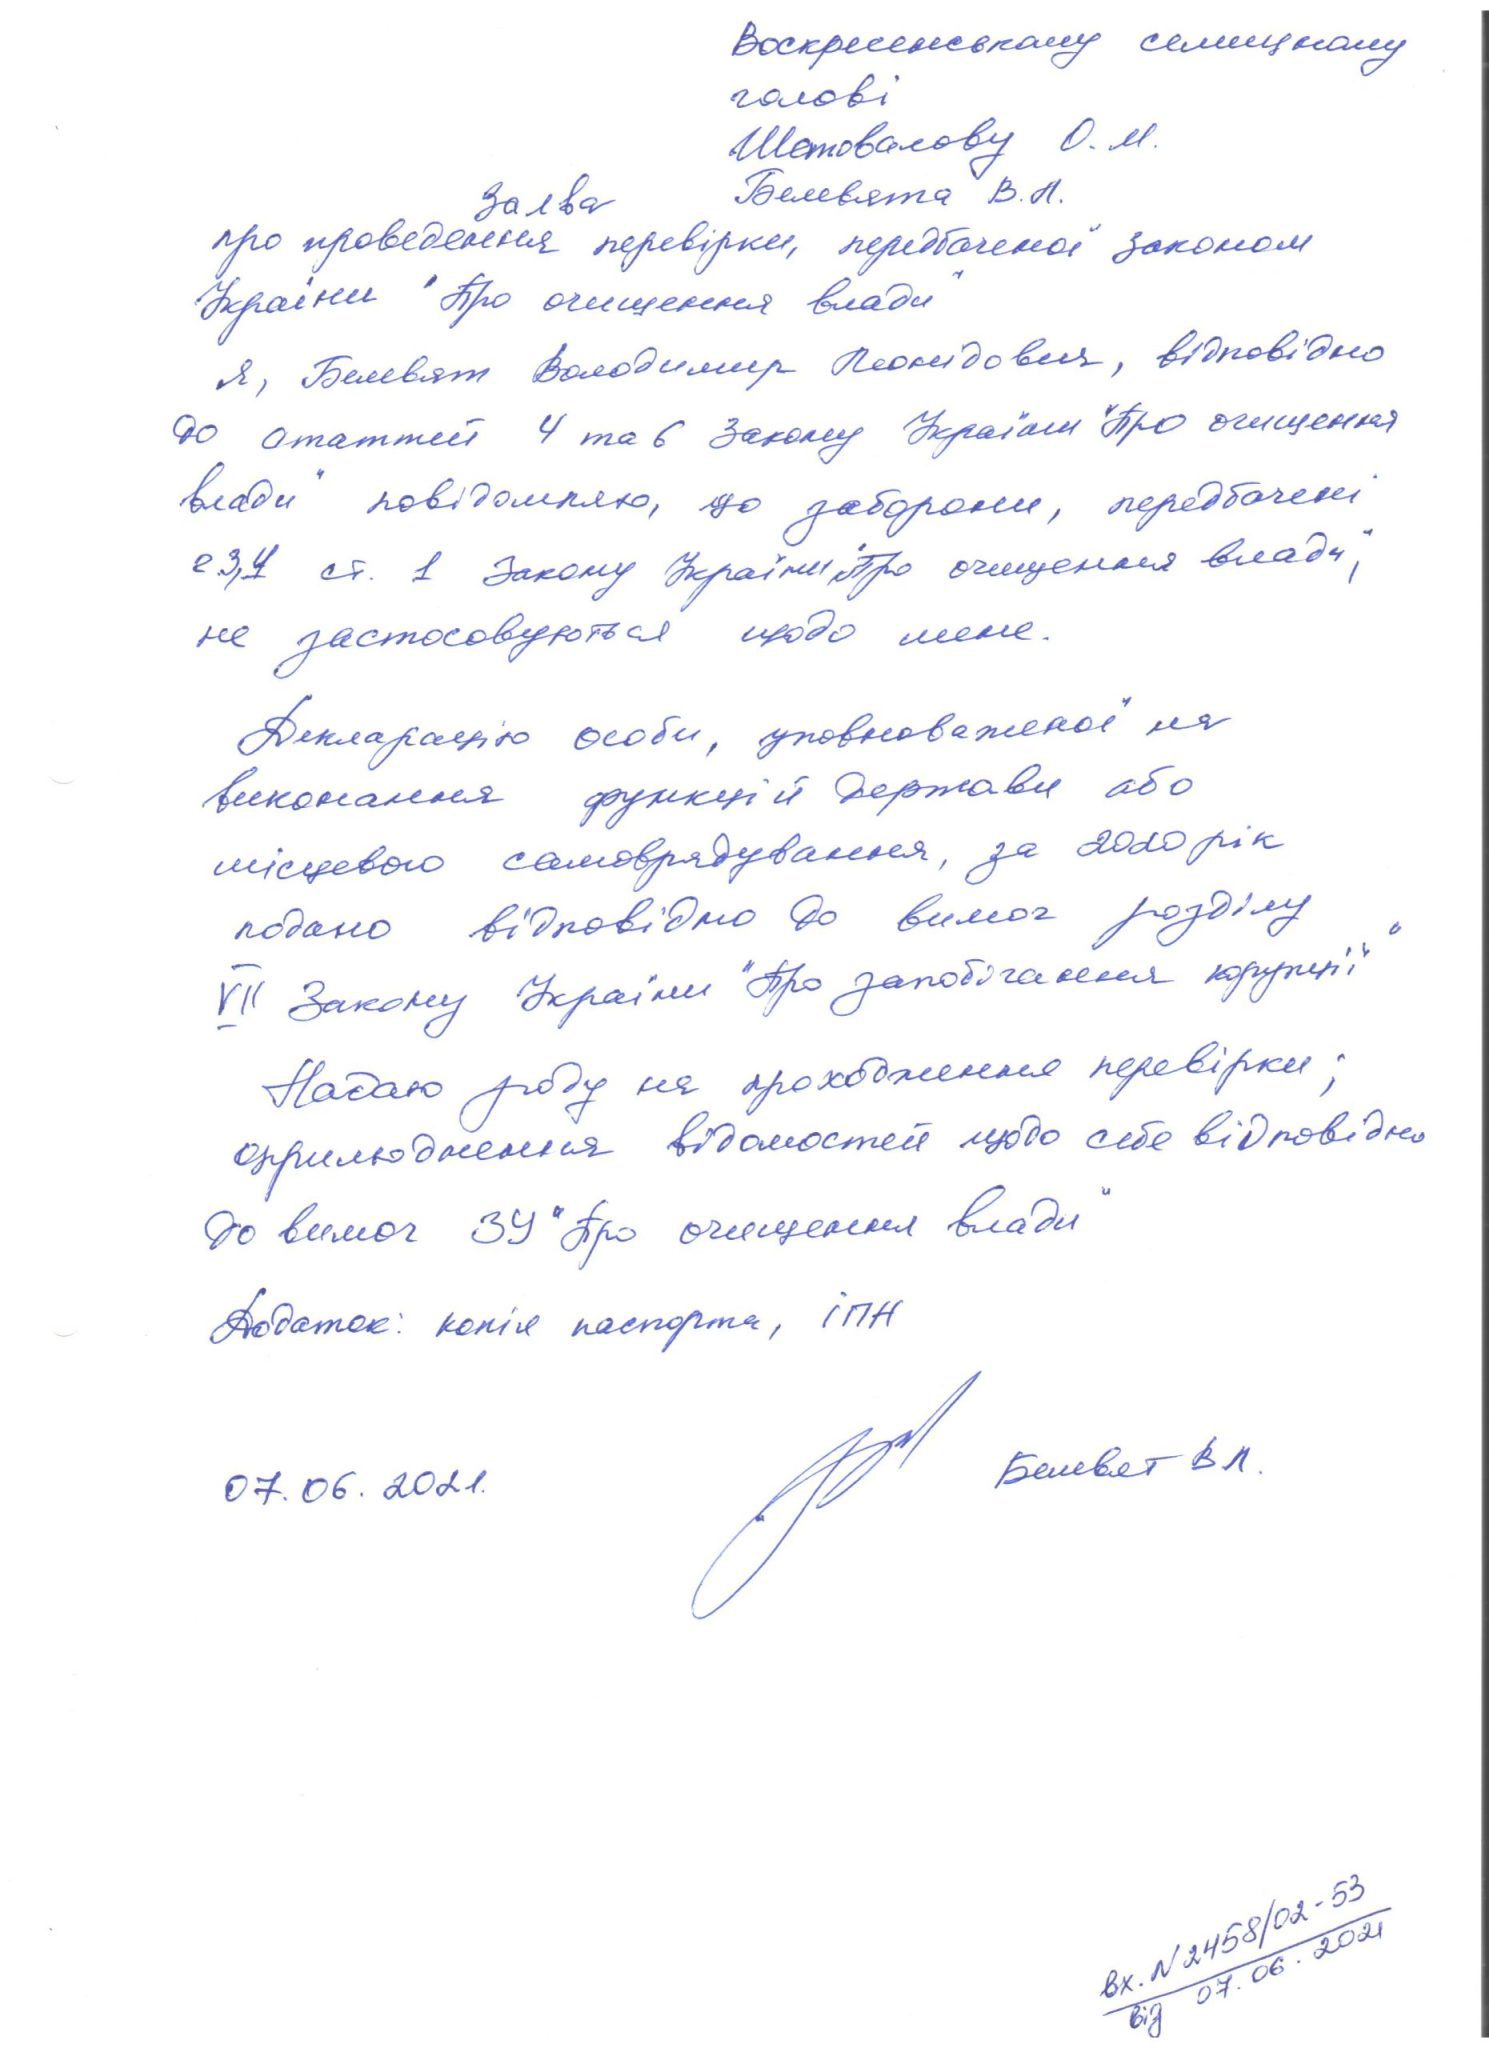 Воскресенському селищному
голові
Шаповалову О.М.
Белевята В.Л.
Заява
про проведення перевірки, передбаченої законом
України "Про очищення влади"
Я, Белевят Володимир Леонідович, відповідно
до статтей 4 та 6 Закону України "Про очищення
влади" повідомляю, що заборони, передбачені
ч 3,4 ст. 1 Закону України "Про очищення влади",
не застосовуються щодо мене.
Декларацію особи, уповноваженої на
виконання функцій держави або
місцевого самоврядування, за 2020 рік
подано відповідно до вимог розділу
VII Закону України "Про запобігання корупції"
Надаю згоду на проходження перевірки;
оприлюднення відомостей щодо себе відповідно
до вимог ЗУ "Про очищення влади"
Додаток: копія паспорта, ІПН
07.06.2021. Белевят В Л.
вх. N 2458/02-53
від 07.06.2021